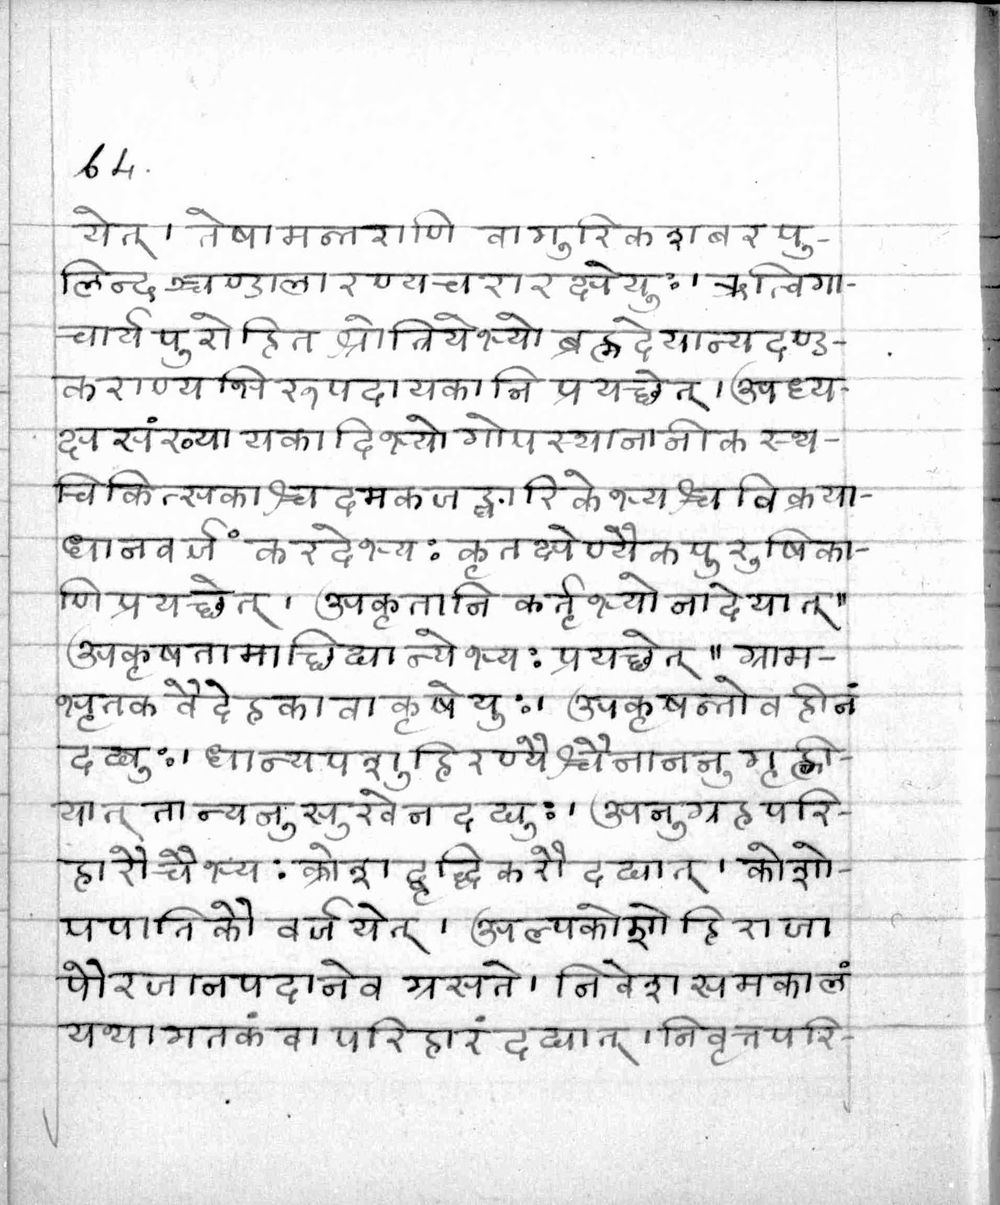 64.
येत् । तेषामन्तराणि वागुरिकशबरपु-
लिन्दश्चण्डालारण्यचरा रक्षेयुः । ऋत्विगा-
चार्यपुरोहितश्रोत्रियेभ्यो ब्रह्मदेयान्यदण्ड-
कराण्यभिरूपदायकानि प्रयच्छेत् । अध्य-
क्षसंख्यायकादिभ्यो गोपस्थानानीकस्थ-
चिकित्सकाश्चदमकजङ्घारिकेभ्यश्च विक्रया-
धानवर्जं करदेभ्यः कृतक्षेण्यैकपुरुषिका-
णि प्रयच्छेत् । अकृतानि कर्तृभ्यो नादेयात् ॥
अकृषतामाछिद्यान्येभ्यः प्रयछेत् ॥ ग्राम-
भृतकवैदेहका वा कृषेयुः । अकृषन्तोवहीनं
दद्युः । धान्यपशुहिरण्यैश्चैनाननुगृह्णी-
यात् तान्यनुसुखेन दद्युः । अनुग्रहपरि-
हारौ चैभ्यः क्रोशद्वृद्धिकरौ दद्यात् । कोशो-
पघातिकौ वर्जयेत् । अल्पकोशो हि राजा
पौरजानपदानेव ग्रसते । निवेशसमकालं
यथागतकं वा परिहारं दद्यात् । निवृत्तपरि-